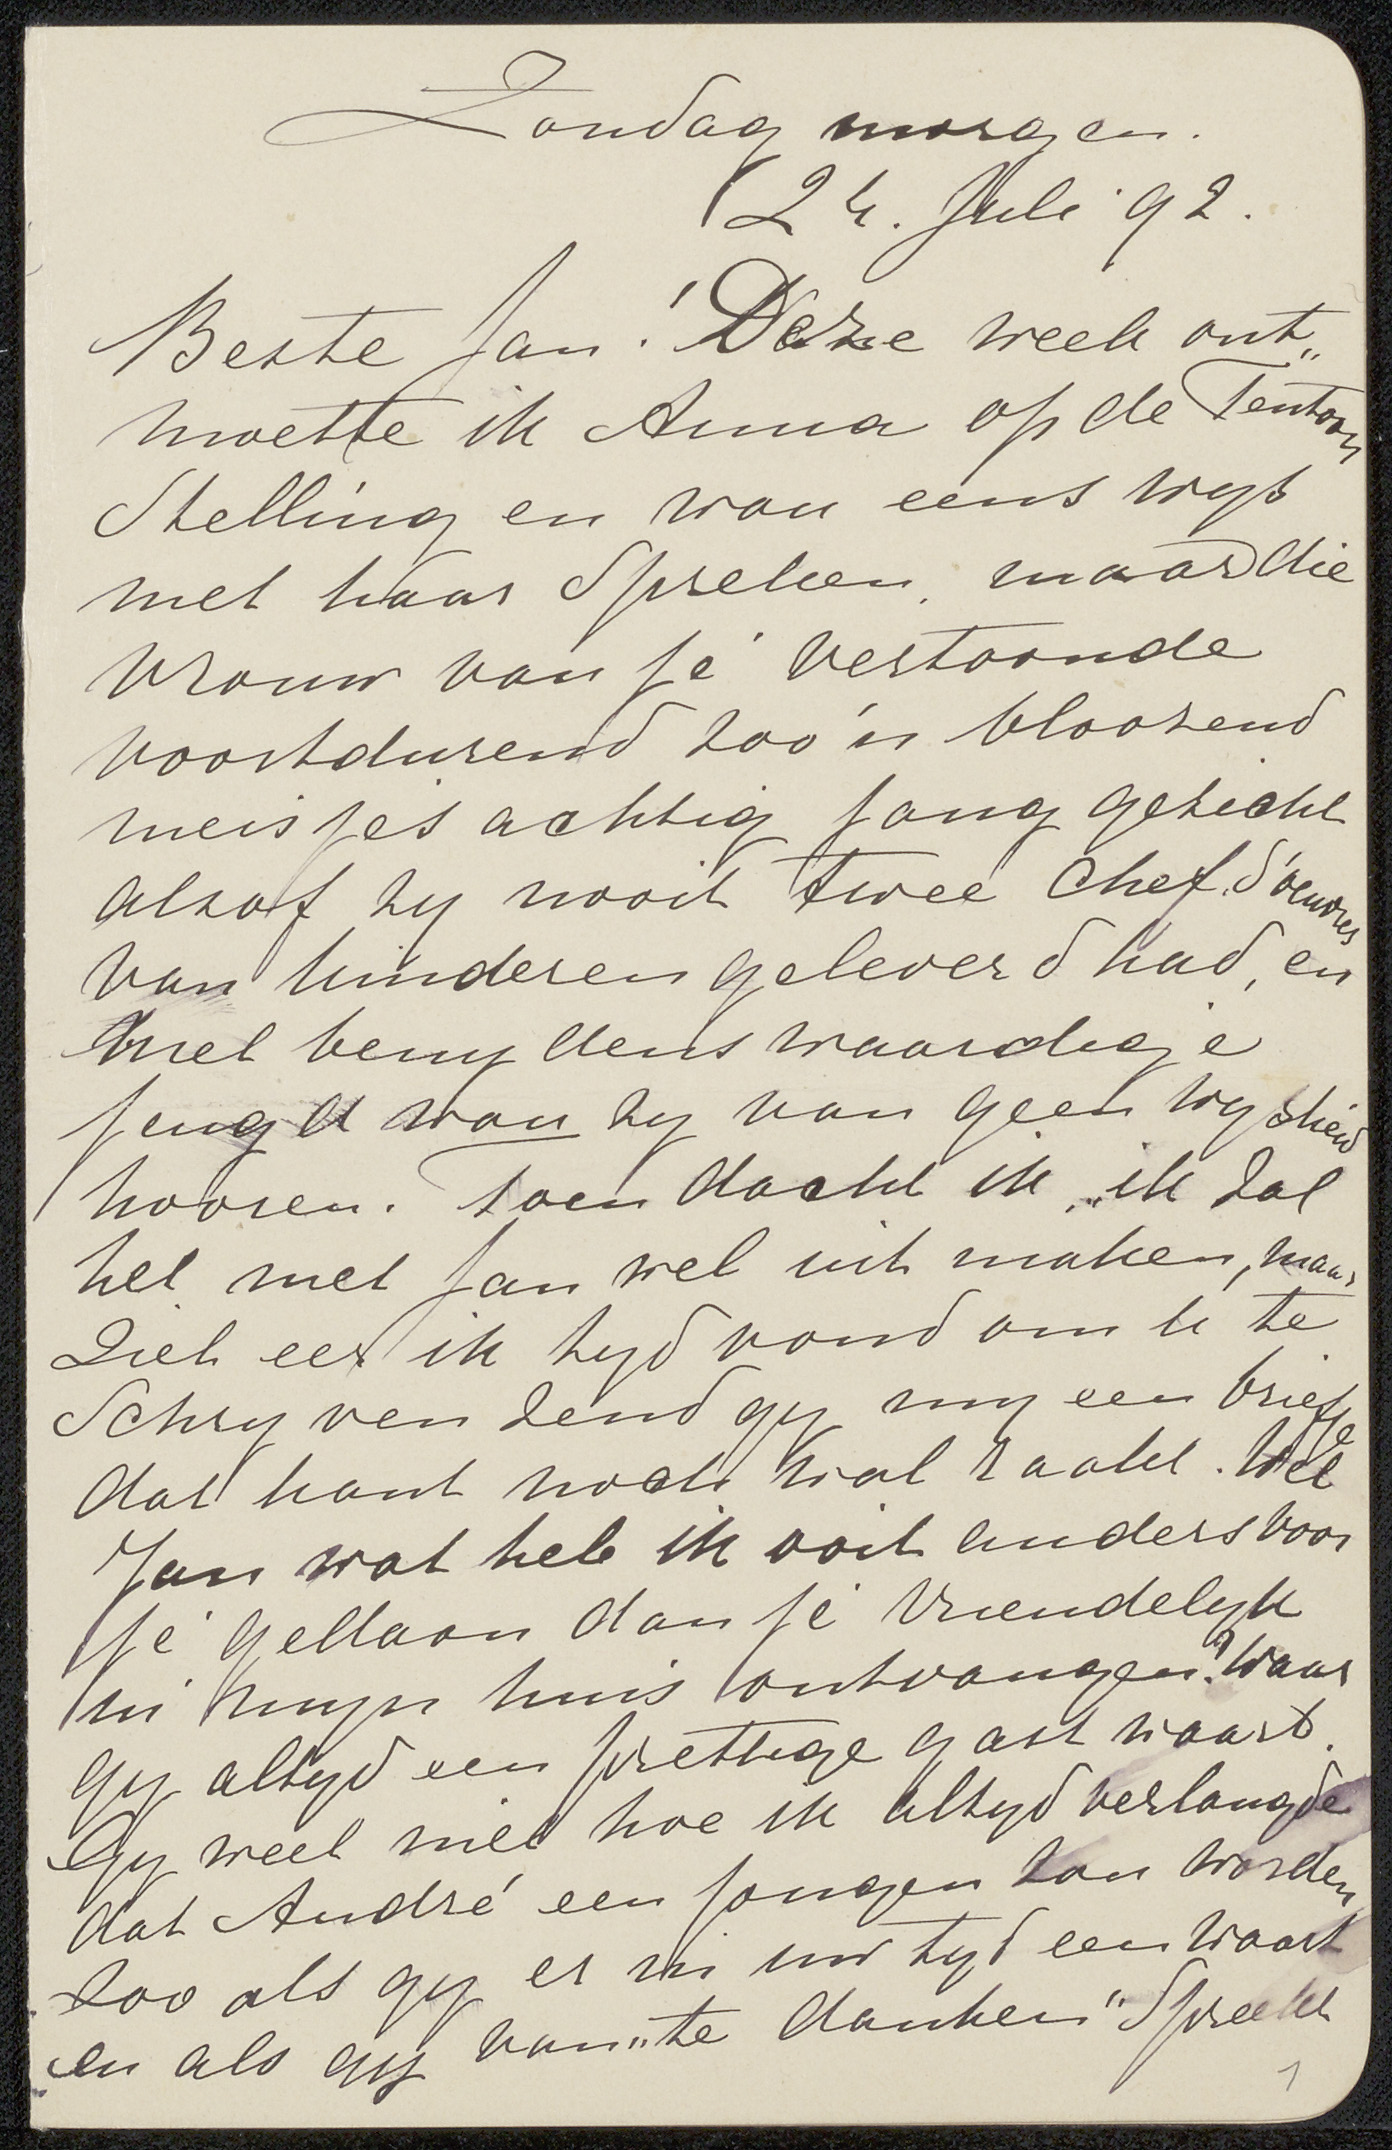 Zondag morgen.
24. Juli '92.
Beste Jan! Deze week ont„
moette ik Anna op de Tentoon
Stelling en wou eens wijs
met haar Spreken, maar die
vrouw van je vertoonde
voortdurend zoo'n bloozend
meisjes achtig jong gezicht
alsof zij nooit twee Chef. d'oeuvres
van kinderen geleverd had, en
met benydens waardige
jeugd wou zy van geen wysheid
hooren. Toen dacht ik „ik zal
het met Jan wel uit maken, maar
Ziet eer ik tyd vond om u te
Schryven zend gy my een briefje
dat kant noch wal raakt. Wel
Jan wat heb ik ooit anders voor
je gedaan dan je vriendelyk
in myn huis ontvangen? Waar
gy altyd een prettige gast waart.
Gy weet niet hoe ik altyd verlangde
dat André een jongen zou worden,
zoo als gy er in uw tyd een waart
en als gy van „te danken" Spreekt
1